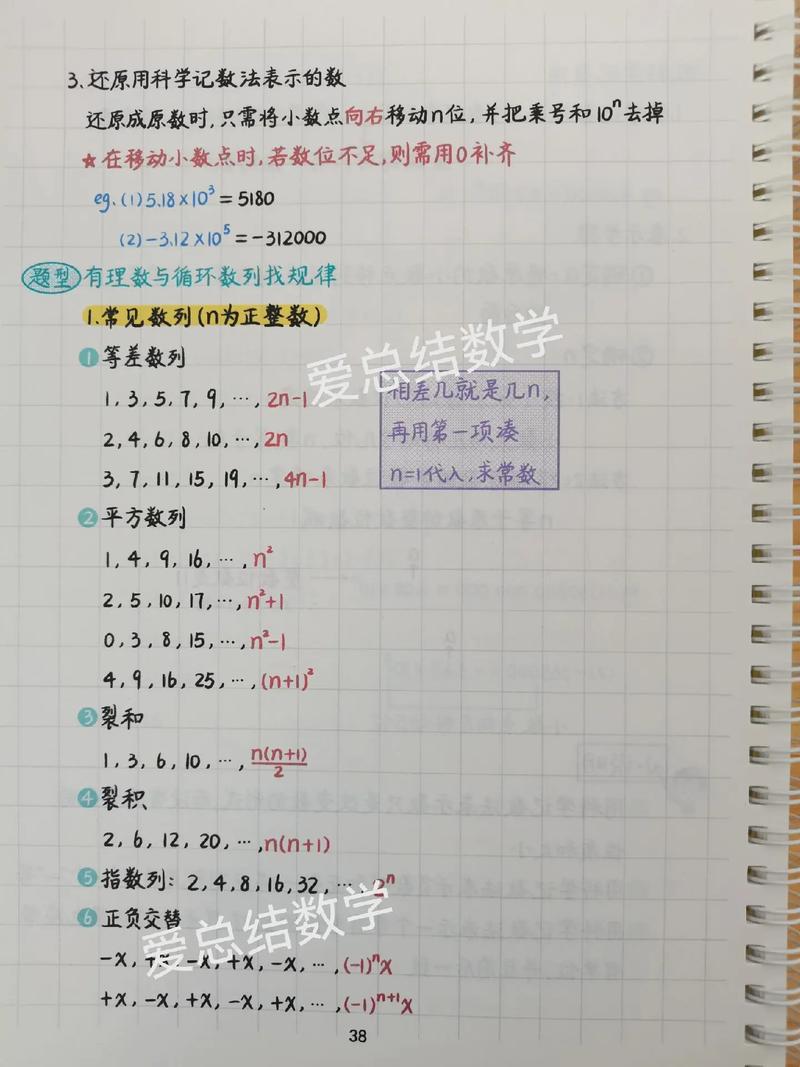 3、还原用科学记数法表示的数
还原成原数时,只需将小数点向右移动n位,并把乘号和10ⁿ去掉
★在移动小数点时,若数位不足,则需用0补齐
eg.(1)5.18×10³=5180
(2)-3.12×10⁵=-312000
题型 有理数与循环数列找规律
1.常见数列(n为正整数)
爱总结数学
① 等差数列
1,3,5,7,9,…,2n-1
2,4,6,8,10,…,2n
3,7,11,15,19,…,4n-1
相差几就是几n,
再用第一项凑
n=1代入,求常数
② 平方数列
1,4,9,16,…,n²
2,5,10,17,…,n²+1
0,3,8,15,…,n²-1
4,9,16,25,…,(n+1)²
③ 裂和
1,3,6,10,…,n(n+1)/2
④ 裂积
2,6,12,20,…,n(n+1)
⑤ 指数列:2,4,8,16,32,…,2ⁿ
⑥ 正负交替
爱总结数学
-x,+x,-x,+x,-x,…,(-1)ⁿx
+x,-x,+x,-x,+x,…,(-1)ⁿ⁺¹x
38